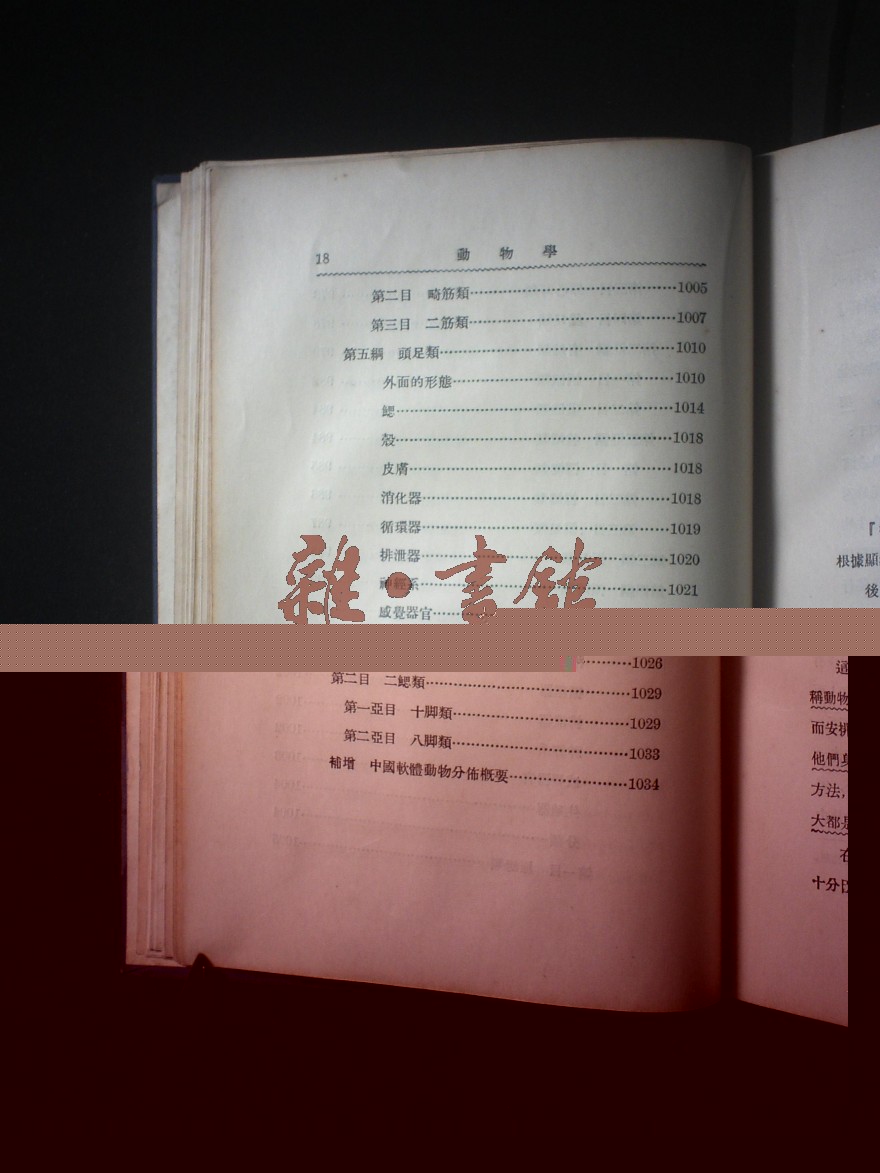 18 動物學
第二目 畸筋類 1005
第三目 二筋類 1007
第五綱 頭足類 1010
外面的形態 1010
鰓 1014
殼 1018
皮膚 1018
消化器 1018
循環器 1019
排泄器 1020
神經系 1021
感覺器官
1026
第二目 二鰓類 1029
第一亞目 十脚類 1029
第二亞目 八脚類 1033
補增 中國軟體動物分佈概要 1034
雜·書館
根據顯
後
這
稱動物
而安排
他們身
方法,
大都是
在
十分